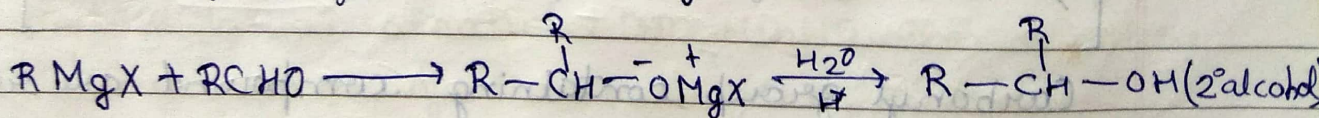 R R
RMgX + RCHO ⟶ R – CH – ⁻OM⁺gX H₂O/H⁺ → R – CH – OH (2° alcohol)